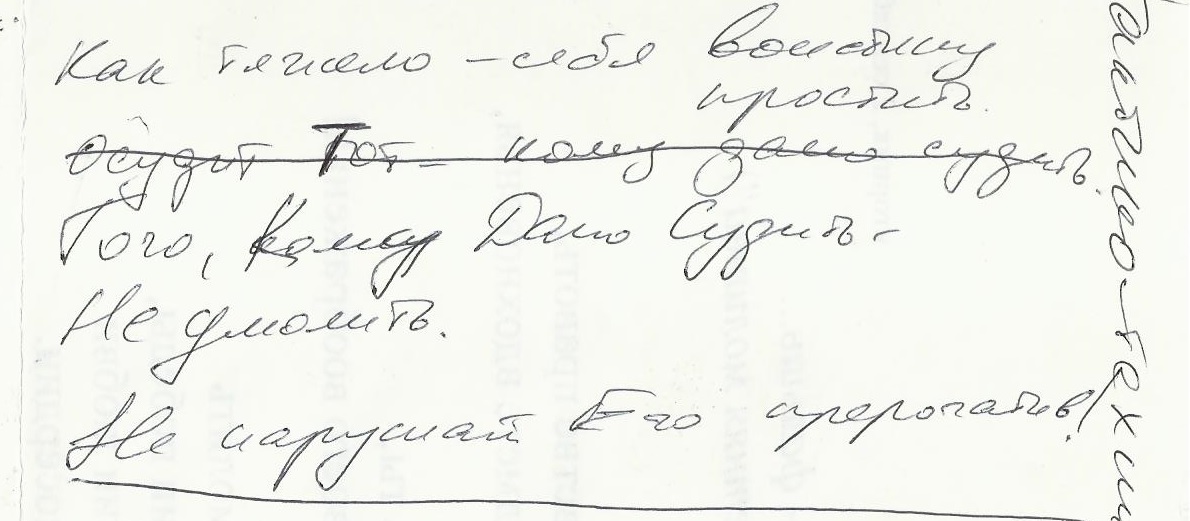 Как тяжело – себя воистину
простить.
Осудит Тот – кому дано судить.
Того, Кому Дано Судить –
Не умолить.
Не нарушай Его прерогатив!